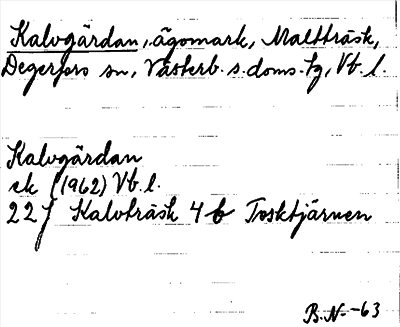 Kalvgärdan, ägomark, Maltträsk,
Degerfors sn, Västerb. s. doms. tg, Vb. l.
Kalvgärdan
ek (1962) Vb. l.
22 J Kalvträsk 4 b Tosktjärnen
B.N. -63